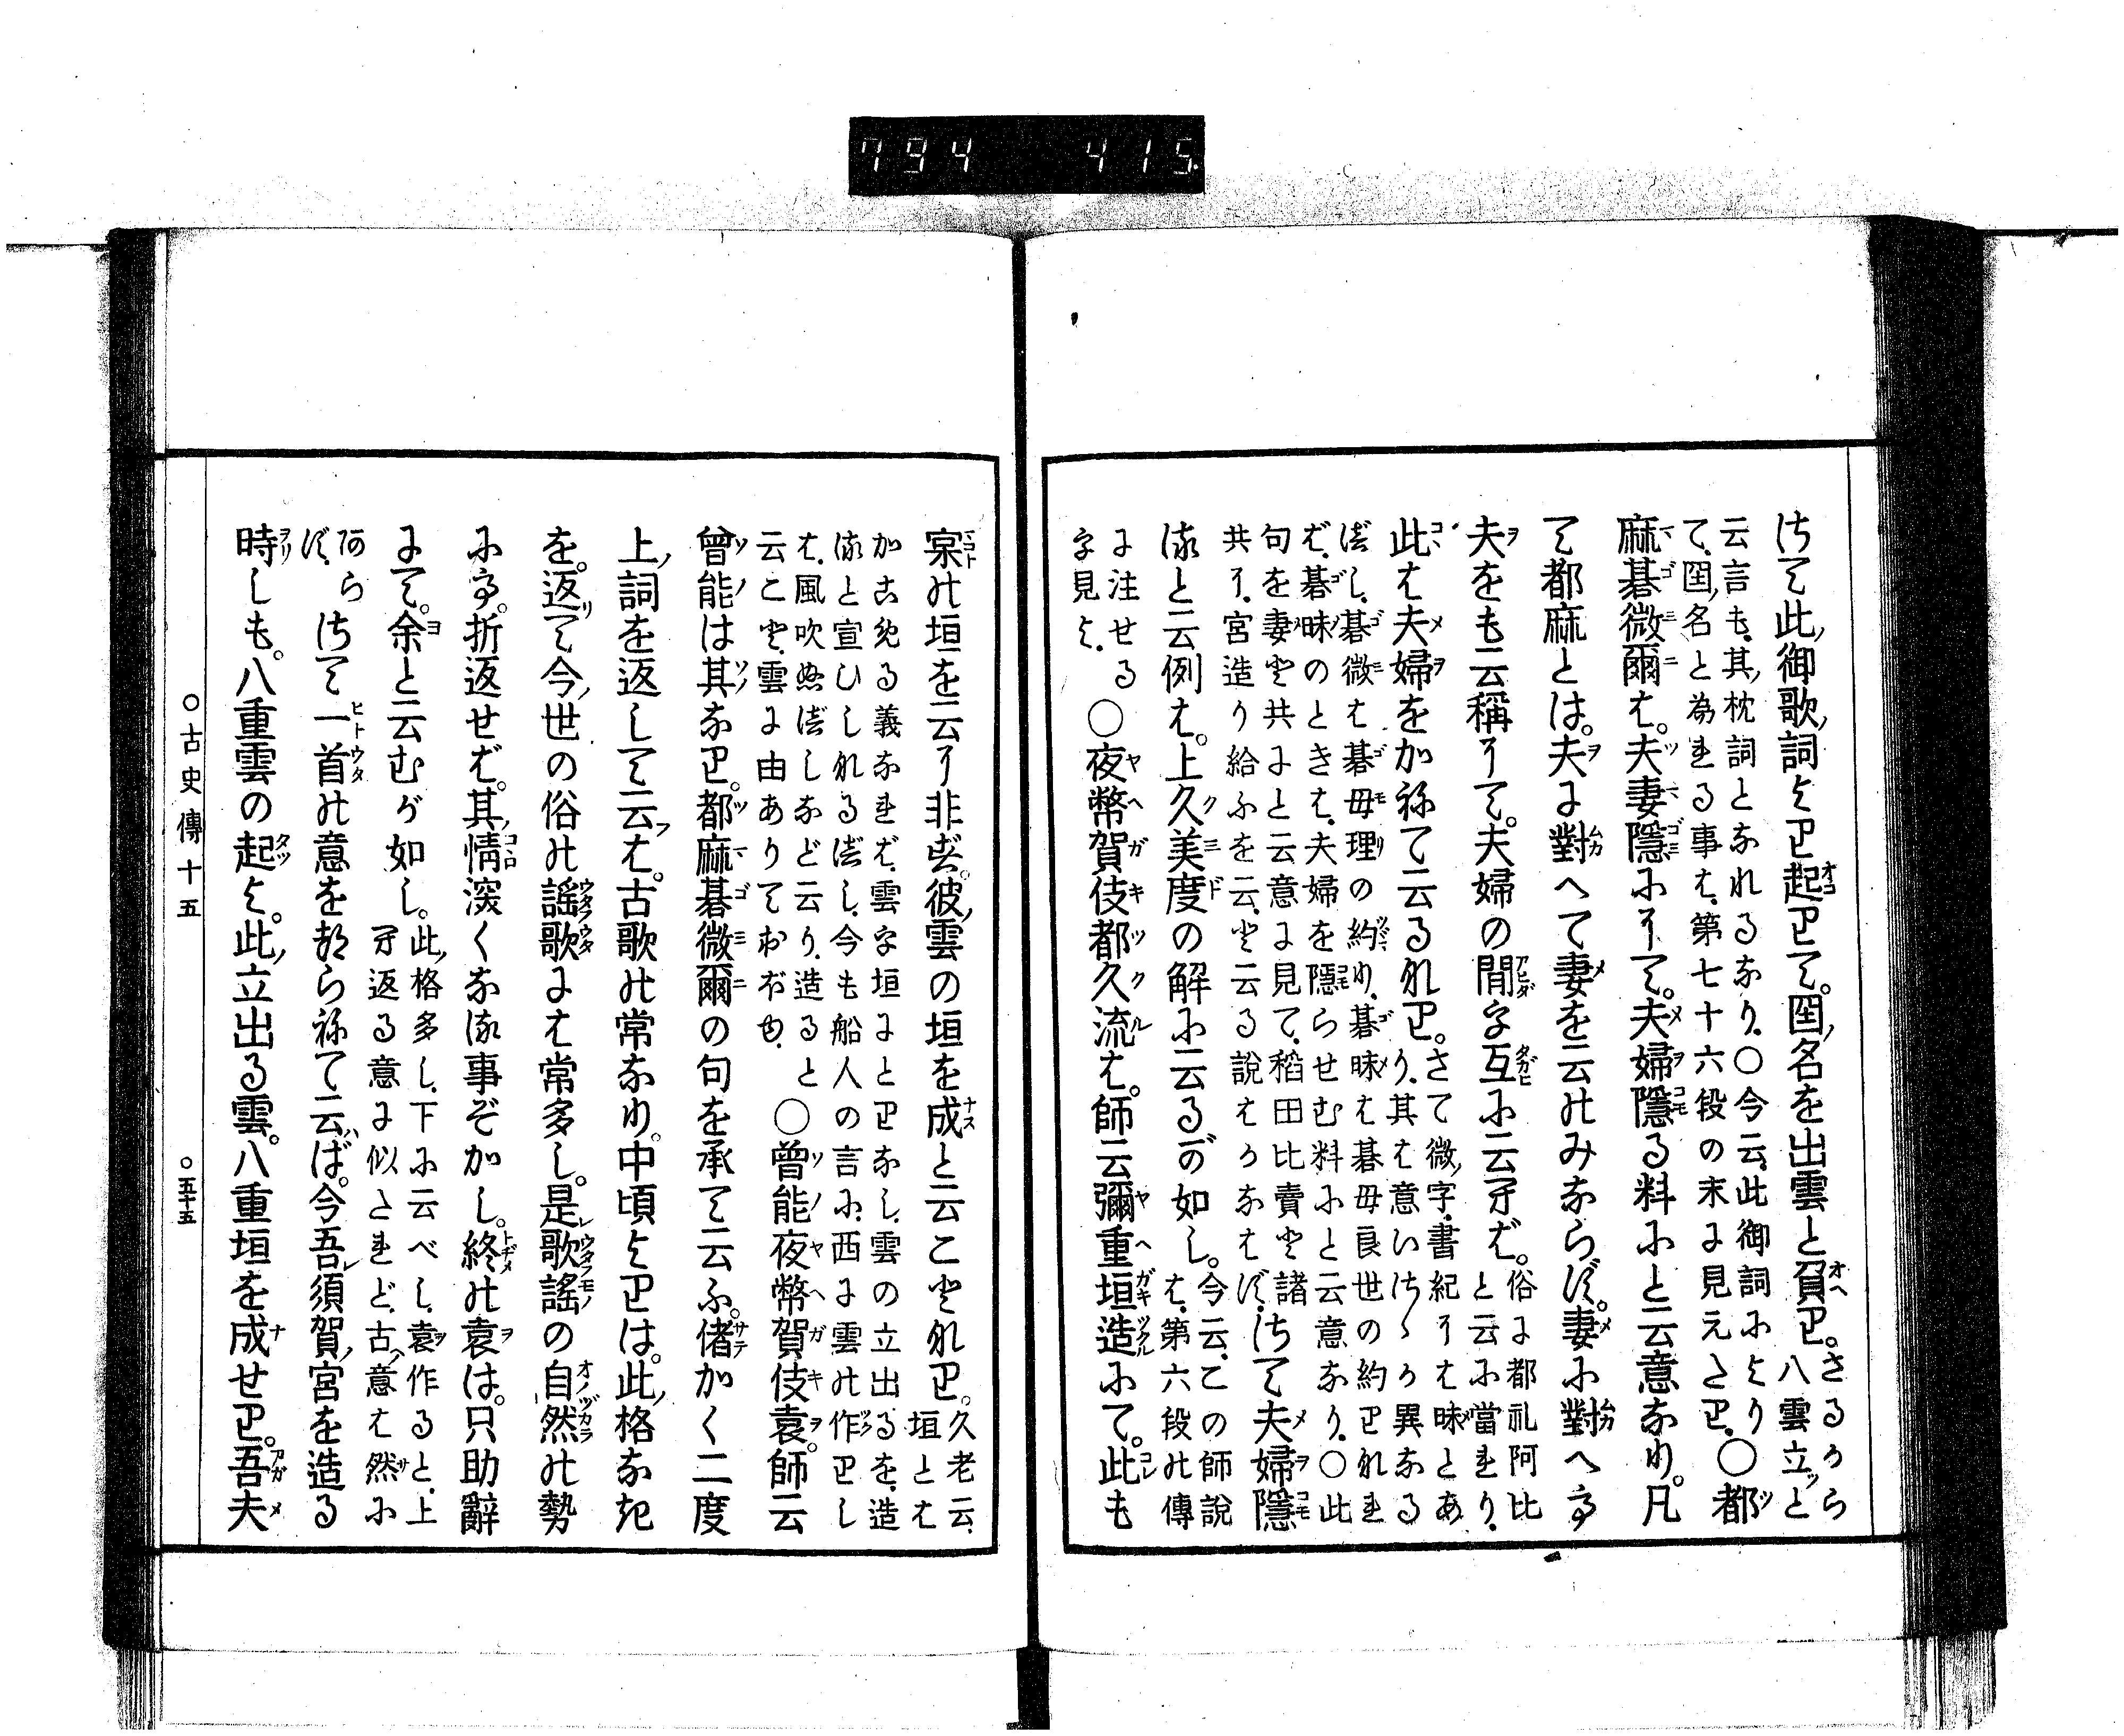 794 415
さて此ノ御歌ノ詞より起りて。国ノ名を出雲と負り。さるから
八雲立と
云言も、其ノ枕詞となれるなり。○今云、此御詞によりて、国ノ名と為れる事は、第七十六段の末に見えたり。○都
麻碁微爾は。夫妻隠にして。夫婦隠る料にと云意なり。凡
て都麻とは。夫に対へて妻を云のみならず。妻に対へて
夫をも云称にて。夫婦の間を互に云言ば。俗に都礼阿比
と云に当れり。
此は夫婦をかねて云るなり。さて微ノ字、書紀には昧とあ
り、其は意いさゝか異なる
べし、碁微は碁母理の約り、碁昧は碁母良世の約りなれ
ば、碁昧のときは、夫婦を隠らせむ料にと云意なり。○此
句を妻と共にと云意に見て、稲田比売と諸
共に、宮造り給ふを云、と云る説はかなはず。さて夫婦隠
ると云例は。上久美度の解に云るが如し。今云、この師説
は、第六段の傳
に注せる
を見よ。○夜幣賀伎都久流は。師云彌重垣造にて。此も
寔の垣を云に非ず。彼ノ雲の垣を成と云ことなり。久老云、
垣とは
かこめる義なれば、雲を垣にとりなし、雲の立出るを、造
ると宣ひしなるべし、今も船人の言に、西に雲の作りし
は、風吹ぬべしなど云り、造ると
云こと、雲に由ありておぼゆ。○曾能夜幣賀伎袁。師云
曾能は其なり。都麻碁微爾の句を承て云ふ。偖かく二度
上ノ詞を返して云は。古歌の常なり。中頃よりは。此ノ格なき
を。返て今ノ世の俗の謡歌には常多し。是歌謡の自然の勢
にて。折返せば。其ノ情深くなる事ぞかし。終の袁は。只助辞
にて。余と云むが如し。此ノ格多し、下に云べし、袁作ると、上
へ返る意に似たれど、古ノ意は然に
あら
ず、さて一首の意をつらねて云ば。今吾須賀ノ宮を造る
時しも。八重雲の起よ。此ノ立出る雲。八重垣を成せり。吾夫
○古史傳十五
○五十五